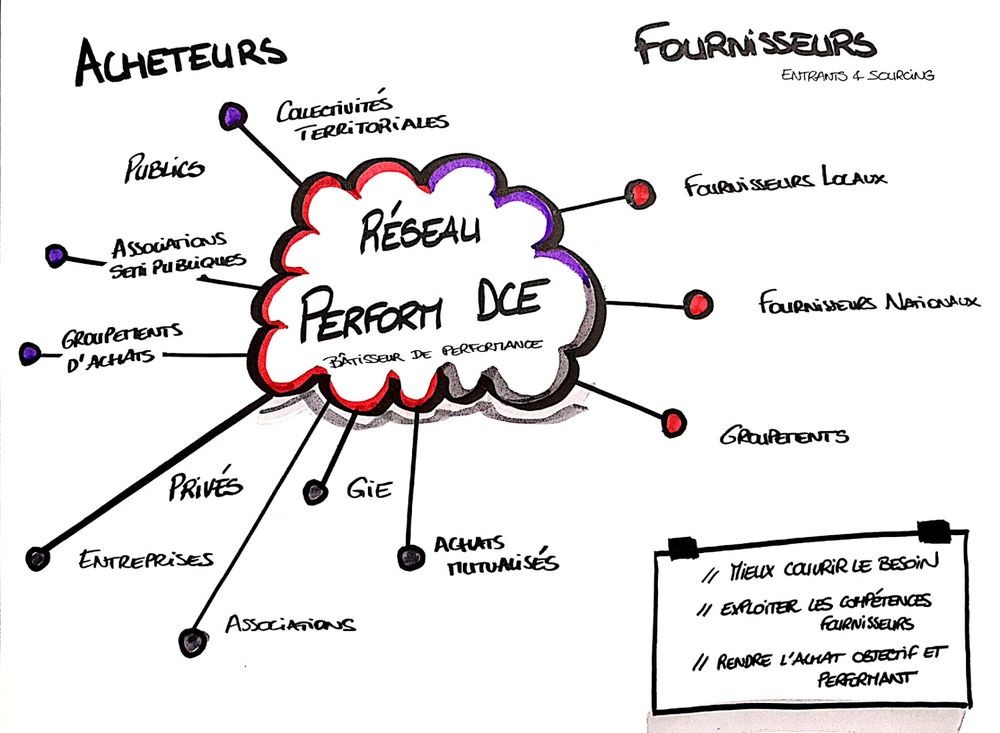 ACHETEURS
FOURNISSEURS
ENTRANTS & SOURCING
COLECTIVITÉS
TERRITORIALES
PUBLICS
FOURNISSEURS LOCAUX
RÉSEAU
ASSOCIATIONS
SEMI PUBLIQUES
PERFORM DCE
FOURNISSEURS NATIONAUX
GROUPEMENTS
D'ACHATS
BÂTISSEUR DE PERFORMANCE
GROUPEMENTS
PRIVÉS
GIE
ENTREPRISES
ACHATS
MUTUALISÉS
ASSOCIATIONS
// MIEUX COUVRIR LE BESOIN
// EXPLOITER LES COMPÉTENCES
FOURNISSEURS
// RENDRE L'ACHAT OBJECTIF ET
PERFORMANT